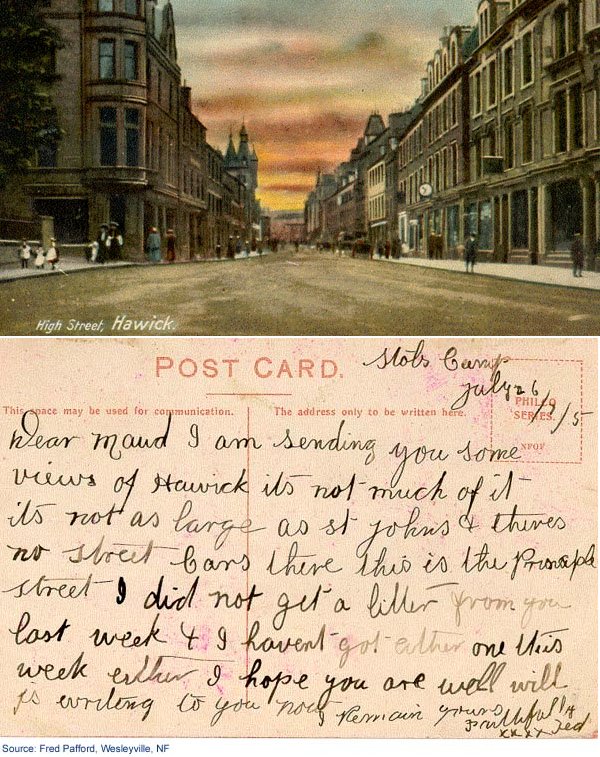 High Street, Hawick.
POST CARD.
Stobs Camp
July 26/7/15
PHILCO
SERIES.
This space may be used for communication.
The address only to be written here.
Dear Maud I am sending you some
views of Hawick its not much of it
its not as large as st johns & theres
no street Cars there this is the
street I did not get a letter from you
last week & I havent got either one this
week either I hope you are well will
writing to you now I Remain yours
faithfully
xxxx Fed
Source: Fred Pafford, Wesleyville, NF